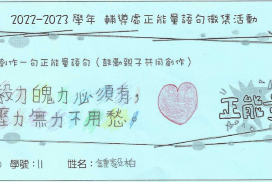 2022-2023 學年 輔導處正能量語句徵集活動
創作一句正能量語句 (鼓勵親子共同創作)
毅力魄力必須有,
壓力無力不用愁!
正能
學號:11 姓名: